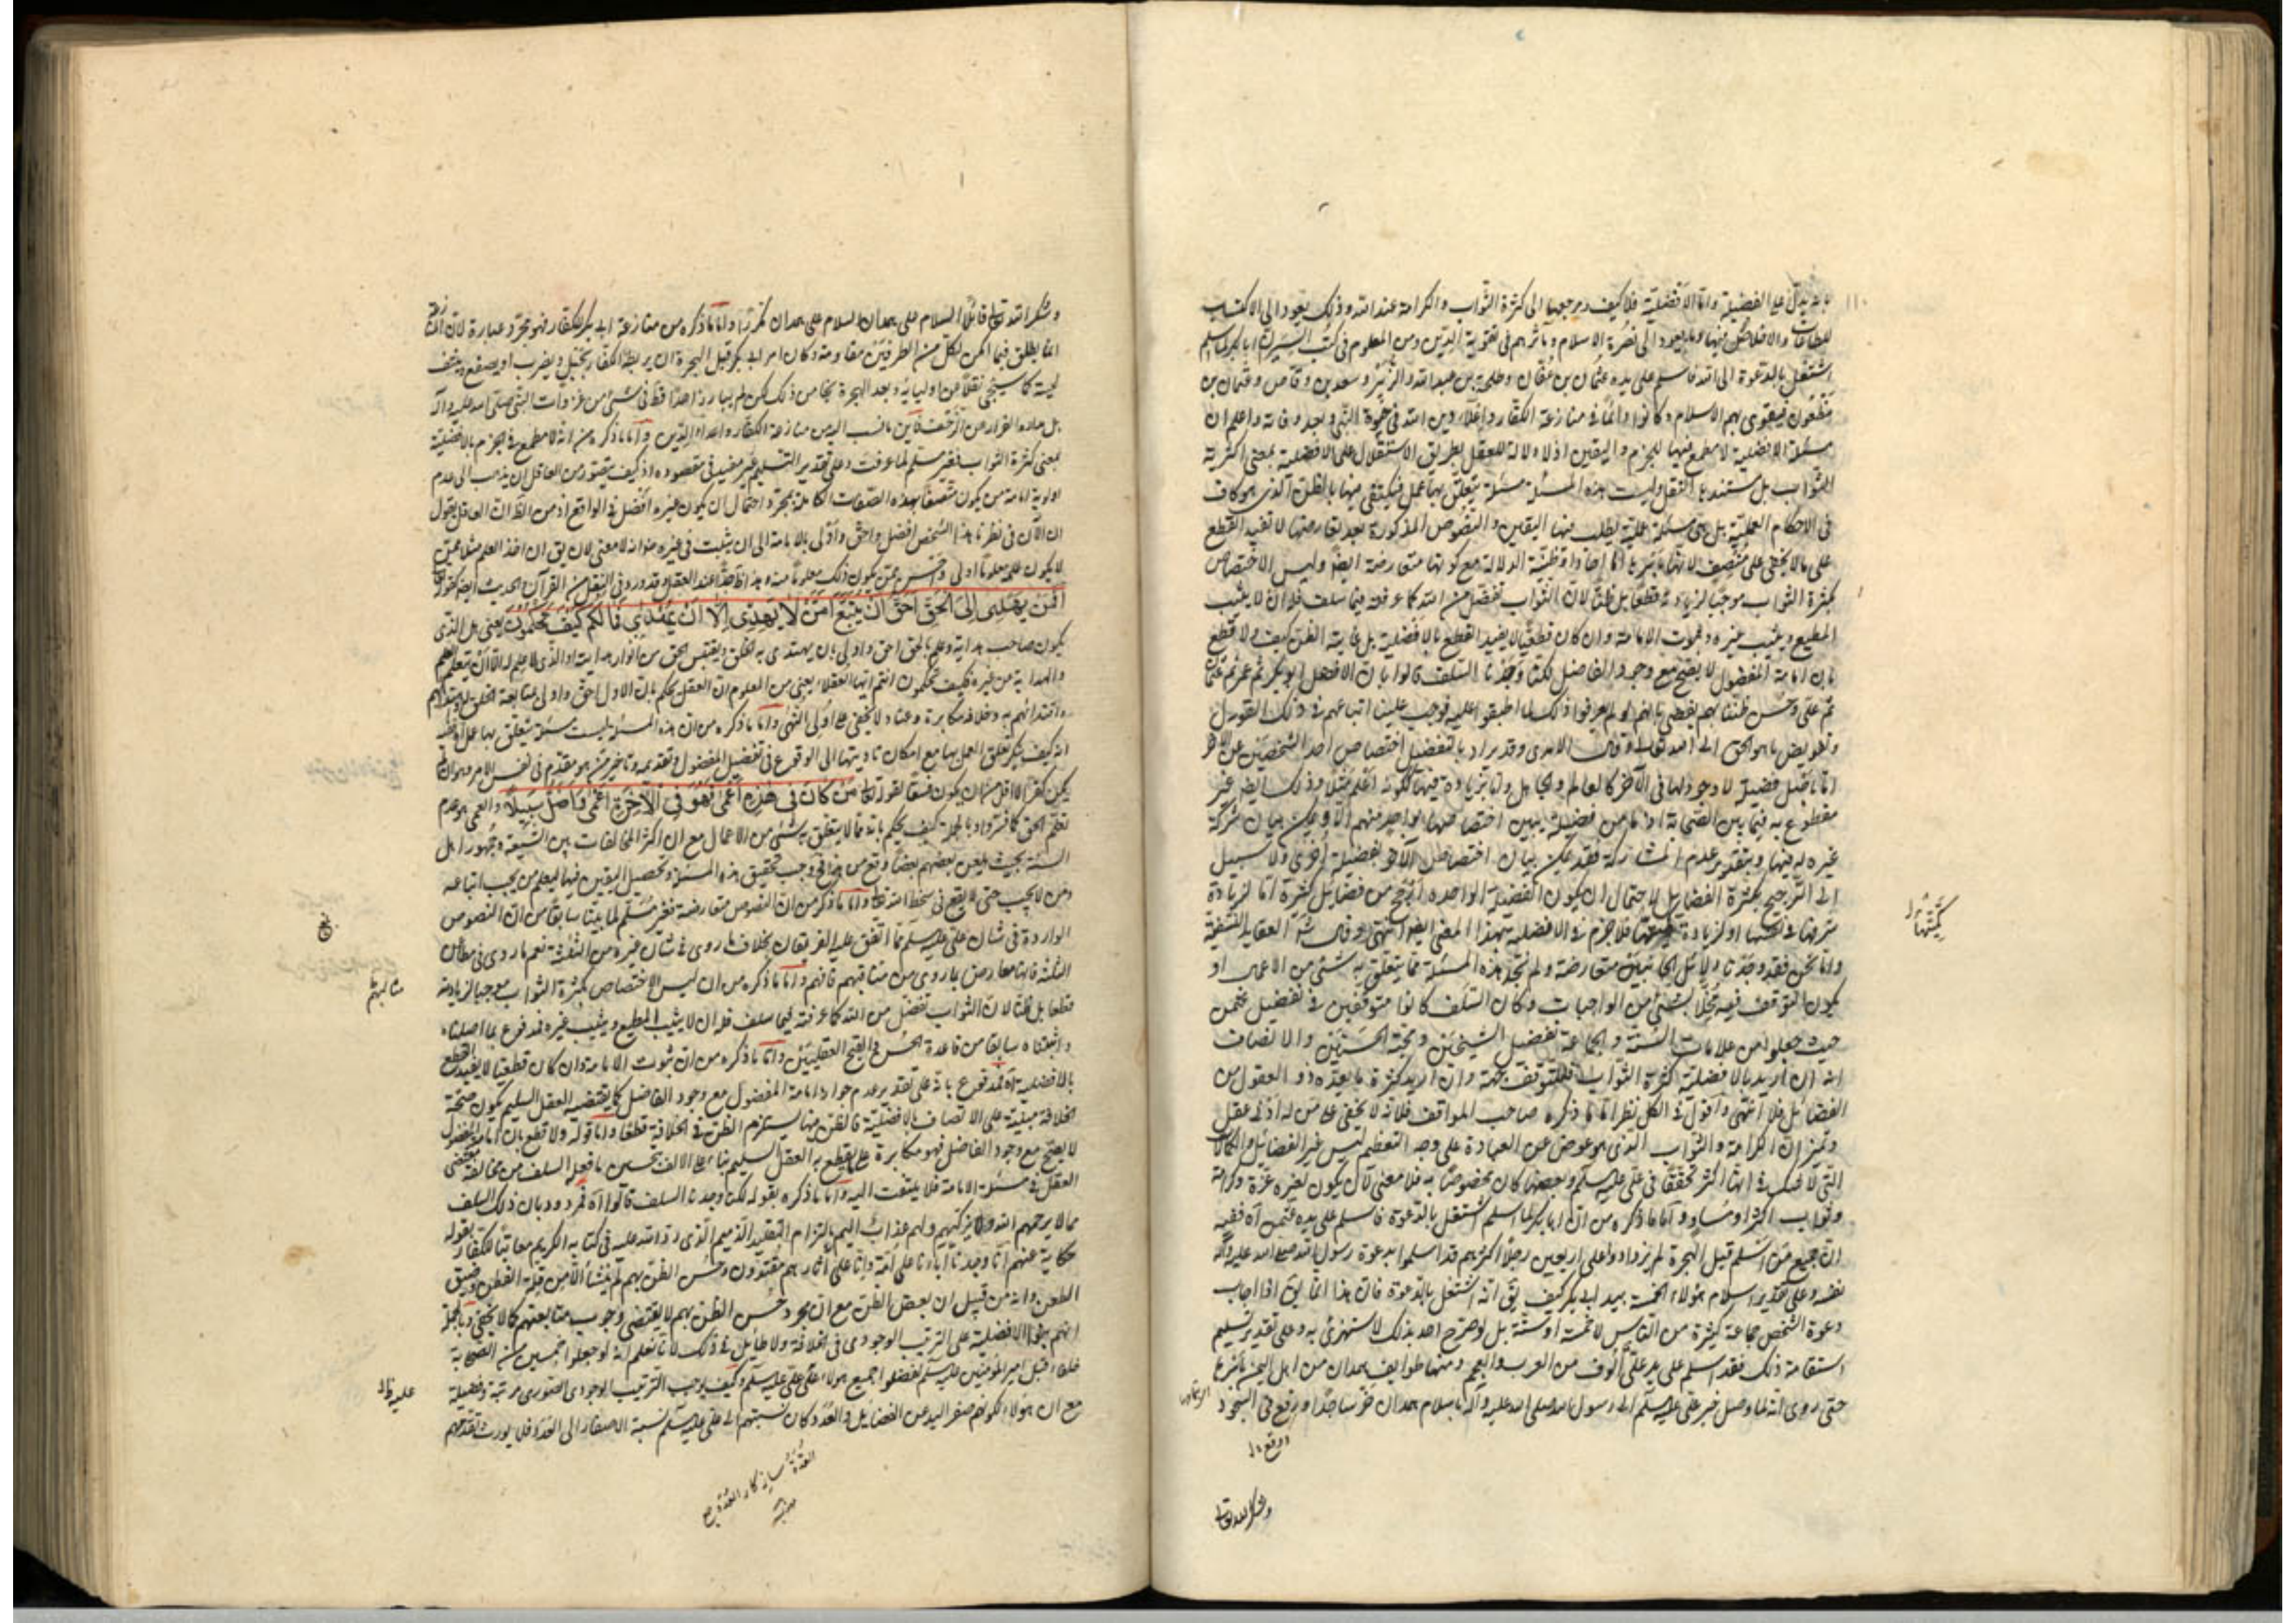 بانه يدل على الفضيلة واما الافضلية فلا كيف ومرجعها الى كثرة الثواب والكرامة عند الله وذلك يعود الى الاكتساب
للطاعات والاخلاص فيها وما يعود الى نصرة الاسلام ومآثرهم في تقوية الدين ومن المعلوم في كتب السير ان ابا بكر لما اسلم
اشتغل بالدعوة الى الله فاسلم على يده عثمان بن عفان وطلحة بن عبد الله والزبير وسعد بن وقاص وعثمان بن
مظعون فيقوى بهم الاسلام وكان دائما في منازعة الكفار واعلاء دين الله في حيوة النبي وبعد وفاته واعلم ان
مسئلة الافضلية لا مطمع فيها للجزم واليقين اذ لا دلالة للعقل بطريق الاستقلال على الافضلية بمعنى اكثرية
الثواب بل مستندها النقل وليست هذه المسئلة مسئلة يتعلق بها عمل فيكتفى فيها بالظن الذي هو كاف
في الاحكام العملية بل هي مسئلة علمية يطلب فيها اليقين والنصوص المذكورة بعد تعارضها لا تفيد القطع
على ما لا يخفى على منصف لانها باسرها اما احاد او ظنية الدلالة مع كونها متعارضة ايضا وليس الاختصاص
بكثرة الثواب موجبا لزيادته قطعا بل ظنا لان الثواب تفضل من الله كما عرفته فيما سلف فله ان لا يثيب
المطيع ويثيب غيره وثبوت الامامة وان كان قطعيا لا يفيد القطع بالافضلية بل غايته الظن كيف ولا قطع
بان امامة المفضول لا يصح مع وجود الفاضل لكنا وجدنا السلف قالوا بان الافضل ابو بكر ثم عمر ثم عثمان
ثم علي وحسن ظننا بهم يقضي بانهم لو لم يعرفوا ذلك لما اطبقوا عليه فوجب علينا اتباعهم في ذلك القول
وتفويض ما هو الحق الى الله تعالى وقال الامدي وقد يراد بالتفضيل اختصاص احد الشخصين عن الآخر
اما باصل فضيلة لا وجود لها في الآخر كالعالم والجاهل واما بزيادة فيها ككونه اعلم مثلا وذلك ايضا غير
مقطوع به فيما بين الصحابة اذ ما من فضيلة يبين اختصاصها بواحد منهم الا ويمكن بيان مشاركة
غيره له فيها وبتقدير عدم المشاركة فقد يمكن بيان اختصاص الآخر بفضيلة اخرى ولا سبيل
الى الترجيح بكثرة الفضايل لاحتمال ان يكون الفضيلة الواحدة ارجح من فضايل كثيرة اما لزيادة
شرفها في نفسها او لزيادة كميتها فلا جزم في الافضلية بهذا المعنى ايضا انتهى وقال شه العقايد النسفية
واما نحن فقد وجدنا دلايل الجانبين متعارضة ولم نجد هذه المسئلة مما يتعلق به شئ من الاعمال او
يكون التوقف فيه مخلا بشئ من الواجبات وكان السلف كانوا متوقفين في تفضيل عثمان
حيث جعلوا من علامات السنة والجماعة تفضيل الشيخين ومحبة الختنين والانصاف
انه ان اريد بالافضلية كثرة الثواب فللتوقف جهة وان اريد كثرة ما يعده ذوو العقول من
الفضائل فلا انتهى واقول في الكل نظر اما ما ذكره صاحب المواقف فلانه لا يخفى على من له ادنى عقل
وتميز ان الكرامة والثواب الذي هو عوض عن العبادة على وجه التعظيم ليس غير الفضائل والكمالات
التي لا شك في انها اكثر تحققا في علي عليه السلم وبعضها كان مخصوصا به فلا معنى لان يكون لغيره عزة وكرامة
وثواب اكثر او مساو واما ما ذكره من ان ابا بكر لما اسلم اشتغل بالدعوة فاسلم على يده عثمان آه ففيه
ان جميع من اسلم قبل الهجرة لم يزدادوا على اربعين رجلا اكثرهم قد اسلموا بدعوة رسول الله صلى الله عليه وآله
نفسه وعلى تقدير اسلام هؤلاء الخمسة بيد ابي بكر كيف يق انه اشتغل بالدعوة فان هذا انما يق اذا اجاب
دعوة الشخص جماعة كثيرة من الناس لا خمسة او ستة بل لو صرح احد بذلك لاستهزئ به وعلى تقدير تسليم
استقامة ذلك فقد اسلم على يد علي الوف من العرب والعجم ومنها طوايف همدان من اهل اليمن باسرها
حتى روى انه لما وصل خبر علي عليه السلم الى رسول الله صلى الله عليه وآله باسلام همدان خر ساجدا ورفع في السجود
كميتها
وشكر الله تعالى
وشكر الله تعالى قائلا السلام على همدان السلام على همدان مكررا واما ما ذكره من منازعة ابي بكر للكفار فهو مجرد عبارة لان المنازعة
انما يطلق فيما امكن لكل من الطرفين مقاومة وكان امر ابي بكر قبل الهجرة ان يربطه الكفار بحبل ويضرب او يصفع وينتف
لحيته كما سيجئ نقلا عن اوليائه وبعد الهجرة نجا من ذلك لكن لم يبارز احدا قط في شئ من غزوات النبي صلى الله عليه وآله
بل عادة الفرار من الزحف فاين ما نسب اليه من منازعة الكفار واعلاء الدين واما ما ذكره من انه لا مطمع في الجزم بالافضلية
بمعنى كثرة الثواب فغير مسلم لما عرفت وعلى تقدير التسليم غير مفيد في مقصوده اذ كيف يتصور من العاقل ان يذهب الى عدم
اولوية امامة من يكون متصفا بهذه الصفات الكاملة بمجرد احتمال ان يكون غيره افضل في الواقع اذ من الظاهر ان العاقل يقول
ان الآن في نظرنا هذا الشخص افضل واحق واولى بالامامة الى ان يثبت في غيره خلافه لا معنى لان يق ان اخذ العلم مثلا عمن
لا يكون علمه معلوما اولى واحسن عمن يكون ذلك معلوما منه وهذا ظاهر عند العقل وقد ورد في النقل من القرآن والحديث ايضا كقوله تعالى
افمن يهدي الى الحق احق ان يتبع امن لا يهدي الا ان يهدى فما لكم كيف تحكمون يعني هل الذي
يكون صاحب هداية وعلم بالحق احق واولى بان يهتدى به الخلق ويقتبس الحق من انوار هدايته او الذي لا يعلم الا ان يتعلم العلم
والهداية من غيره فكيف تحكمون انتم ايها العقلاء يعني من المعلوم ان العقل يحكم بان الاول احق واولى بمتابعة الخلق
واقتدائهم به وخلافه مكابرة وعناد لا يخفى على اولي النهى واما ما ذكره من ان هذه المسئلة ليست مسئلة يتعلق بها عمل ففيه
انه كيف ينكر تعلق العمل بها مع امكان تاديتها الى الوقوع في تفضيل المفضول وتقديمه وتاخير من هو مقدم في نفس الامر وهو ان لم
يكن كفرا لا اقل من ان يكون فسقا لقوله تعالى من كان في هذه اعمى فهو في الآخرة اعمى واضل سبيلا والعمى هو عدم
تعلم الحق كما فسر وبالجملة كيف يحكم بانه مما لا يتعلق به شئ من الاعمال مع ان اكثر المخالفات بين الشيعة وجمهور اهل
السنة بحيث يلعن بعضهم بعضا وقع من هذا فوجب تحقيق هذه المسئلة وتحصيل اليقين فيها ليعلم من يجب اتباعه
ومن لا يجب حتى لا يقع في سخط الله تعالى واما ما ذكر من ان النصوص متعارضة فغير مسلم لما بينا سابقا من ان النصوص
الواردة في شان علي عليه السلم مما اتفق عليه الفريقان بخلاف ما روى في شان غيره من الثلثة نعم ما روى في مطاعن
الثلثة فانها معارض بما روى من مناقبهم فافهم واما ما ذكره من ان ليس الاختصاص بكثرة الثواب موجبا لزيادته
قطعا بل ظنا لان الثواب تفضل من الله كما عرفته فيما سلف فله ان لا يثيب المطيع ويثيب غيره فمدفوع بما اصلناه
واثبتناه سابقا من قاعدة الحسن والقبح العقليين واما ما ذكره من ان ثبوت الامامة وان كان قطعيا لا يفيد القطع
بالافضلية آه فمدفوع بانه على تقدير عدم جواز امامة المفضول مع وجود الفاضل كما يقتضيه العقل السليم يكون صحة
الخلافة مبنية على الاتصاف بالافضلية فالظن فيها يستلزم الظن في الخلافة قطعا واما قوله ولا قطع بان امامة المفضول
لا يصح مع وجود الفاضل فهو مكابرة على ما يقطع به العقل السليم بناء على الالف بتحسين ما فعله السلف من مخالفة مقتضى
العقل في مسئلة الامامة فلا يلتفت اليه واما ما ذكره بقوله لكنا وجدنا السلف قالوا آه فمردود بان ذلك السلف
مما لا يرحمهم الله ولا يزكيهم ولهم عذاب اليم بالتزام التقليد الذميم الذي رد الله عليه في كتابه الكريم معاتبا للكفار بقوله
حكاية عنهم انا وجدنا آباءنا على امة وانا على آثارهم مقتدون وحسن الظن بهم لم ينشأ الا من قلة الفطن وضيق
الطعن وانه من قبيل ان بعض الظن مع ان مجرد حسن الظن بهم لا يقتضي وجوب متابعتهم كما لا يخفى وبالجملة
انهم بنوا الافضلية على الترتيب الوجودي في الخلافة ولا طايل في ذلك لانا نعلم انه لو جعلوا خمسين من الصحابة
خلفاء قبل امير المؤمنين عليه السلم لفضلوا جميع هؤلاء على علي عليه السلم وكيف يوجب الترتيب الوجودي الصوري مرتبة وفضيلة
مع ان هؤلاء لكونهم صفر اليد عن الفضايل والعدد كان نسبتهم الى علي عليه السلم نسبة الاصفار الى العدد فلا يورث تقدمهم
مثالبهم